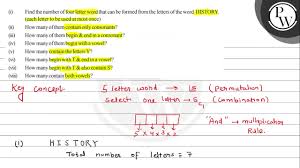 (i) Find the number of four letter word that can be formed from the letters of the word HISTORY.
(each letter to be used at most once)
(ii) How many of them contain only consonants?
(iii) How many of them begin & end in a consonant?
(iv) How many of them begin with a vowel?
(v) How many contain the letters Y?
(vi) How many begin with T & end in a vowel?
(vii) How many begin with T & also contain S?
(viii) How many contain both vowels?
PW
Key concept
5 letter word → 5 (Permutation)
Select one letter → 5C1 (Combination)
5 x 4 x 3 x 2
"And" → multiplication
Rule.
(1) H I S T O R Y
Total number of letters = 7